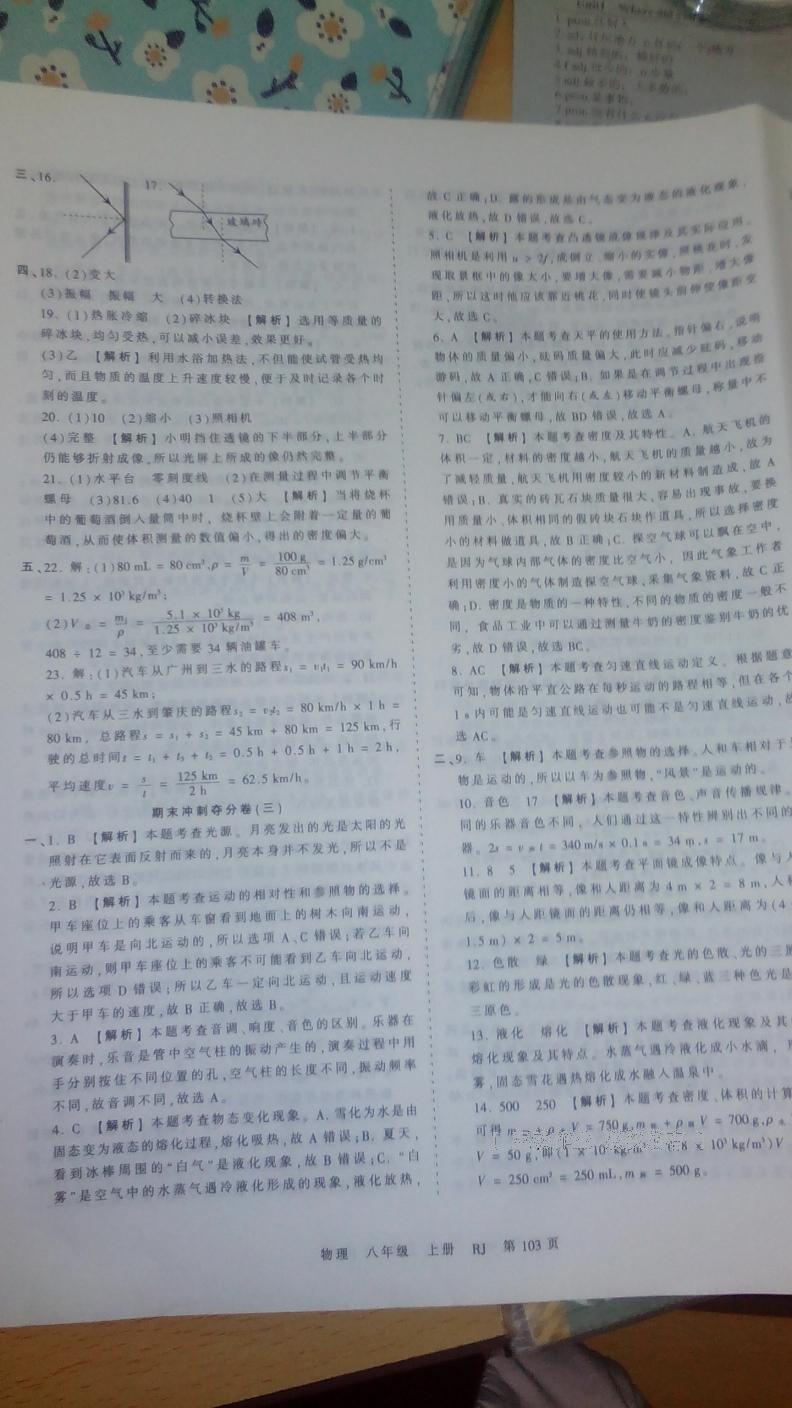 三、16.
17.
玻璃砖
四、18. (2)变大
(3)振幅 振幅 大 (4)转换法
19. (1)热胀冷缩 (2)碎冰块 【解析】选用等质量的
碎冰块,均匀受热,可以减小误差,效果更好。
(3)乙 【解析】利用水浴加热法,不但能使试管受热均
匀,而且物质的温度上升速度较慢,便于及时记录各个时
刻的温度。
20. (1)10 (2)缩小 (3)照相机
(4)完整 【解析】小明挡住透镜的下半部分,上半部分
仍能够折射成像,所以光屏上所成的像仍然完整。
21. (1)水平台 零刻度线 (2)在测量过程中调节平衡
螺母 (3)81.6 (4)40 1 (5)大 【解析】当将烧杯
中的葡萄酒倒入量筒中时, 烧杯壁上会附着一定量的葡
萄酒,从而使体积测量的数值偏小,得出的密度偏大。
五、22. 解:(1)80 mL = 80 cm³,ρ = m/V = 100 g/80 cm³ = 1.25 g/cm³
= 1.25 × 10³ kg/m³;
(2)V = m/ρ = 5.1 × 10⁵ kg/1.25 × 10³ kg/m³ = 408 m³,
408 ÷ 12 = 34,至少需要 34 辆油罐车。
23. 解:(1)汽车从广州到三水的路程s₁ = v₁t₁ = 90 km/h
× 0.5 h = 45 km;
(2)汽车从三水到肇庆的路程s₂ = v₂t₂ = 80 km/h × 1 h =
80 km, 总路程s = s₁ + s₂ = 45 km + 80 km = 125 km,行
驶的总时间t = t₁ + t₃ + t₂ = 0.5 h + 0.5 h + 1 h = 2 h,
平均速度v = s/t = 125 km/2 h = 62.5 km/h。
期末冲刺夺分卷(三)
一、1. B 【解析】本题考查光源。月亮发出的光是太阳的光
照射在它表面反射而来的,月亮本身并不发光,所以不是
光源,故选 B。
2. B 【解析】本题考查运动的相对性和参照物的选择。
甲车座位上的乘客从车窗看到地面上的树木向南运动,
说明甲车是向北运动的,所以选项 A、C 错误;若乙车向
南运动,则甲车座位上的乘客不可能看到乙车向北运动,
所以选项 D 错误;所以乙车一定向北运动,且运动速度
大于甲车的速度,故 B 正确,故选 B。
3. A 【解析】本题考查音调、响度、音色的区别。乐器在
演奏时,乐音是管中空气柱的振动产生的,演奏过程中用
手分别按住不同位置的孔,空气柱的长度不同,振动频率
不同,故音调不同,故选 A。
4. C 【解析】本题考查物态变化现象。A. 雪化为水是由
固态变为液态的熔化过程,熔化吸热,故 A 错误;B. 夏天,
看到冰棒周围的“白气”是液化现象,故 B 错误;C. “白
雾”是空气中的水蒸气遇冷液化形成的现象,液化放热,
故 C 正确;D. 露的形成是由气态变为液态的液化现象,
液化放热,故 D 错误,故选 C。
5. C 【解析】本题考查凸透镜成像规律及其实际应用。
照相机是利用 u > 2f,成倒立、缩小的实像,照桃花时,发
现取景框中的像太小,要增大像,需要减小物距,增大像
距,所以这时他应该靠近桃花,同时使镜头前伸使像距变
大,故选 C。
6. A 【解析】本题考查天平的使用方法。指针偏右,说明
物体的质量偏小,砝码质量偏大,此时应减少砝码,移动
游码,故 A 正确,C 错误;B. 如果是在调节过程中出现指
针偏左(或右),才能向右(或左)移动平衡螺母,称量中不
可以移动平衡螺母,故 BD 错误,故选 A。
7. BC 【解析】本题考查密度及其特性。A. 航天飞机的
体积一定,材料的密度越小,航天飞机的质量越小,故为
了减轻质量,航天飞机用密度较小的新材料制造成,故 A
错误;B. 真实的砖瓦石块质量很大,容易出现事故,要换
用质量小、体积相同的假砖块石块作道具,所以选择密度
小的材料做道具,故 B 正确;C. 探空气球可以飘在空中,
是因为气球内部气体的密度比空气小, 因此气象工作者
利用密度小的气体制造探空气球,采集气象资料,故 C 正
确;D. 密度是物质的一种特性,不同的物质的密度一般不
同, 食品工业中可以通过测量牛奶的密度鉴别牛奶的优
劣,故 D 错误,故选 BC。
8. AC 【解析】本题考查匀速直线运动定义。根据题意
可知,物体沿平直公路在每秒运动的路程相等,但在各个
1 s 内可能是匀速直线运动也可能不是匀速直线运动,故
选 AC。
二、9. 车 【解析】本题考查参照物的选择。人和车相对于
物是运动的,所以以车为参照物,“风景”是运动的。
10. 音色 17 【解析】本题考查音色、声音传播规律。
同的乐器音色不同, 人们通过这一特性辨别出不同的
器。2s = vt = 340 m/s × 0.1 s = 34 m,s = 17 m。
11. 8 5 【解析】本题考查平面镜成像特点。像与人
镜面的距离相等,像和人距离为 4 m × 2 = 8 m,人
后,像与人距镜面的距离仍相等,像和人距离为(4
1.5 m) × 2 = 5 m。
12. 色散 绿 【解析】本题考查光的色散、光的三原
彩虹的形成是光的色散现象,红、绿、蓝三种色光是
三原色。
13. 液化 熔化 【解析】本题考查液化现象及其
熔化现象及其特点。水蒸气遇冷液化成小水滴,
雾,固态雪花遇热熔化成水融入温泉中。
14. 500 250 【解析】本题考查密度、体积的计算
可得 m + ρ V = 750 g,m + ρ V = 700 g,ρ
V = 50 g,即(1 × 10³ kg/m³ 0.8 × 10³ kg/m³)V
V = 250 cm³ = 250 mL,m = 500 g。
物理 八年级 上册 RJ 第 103 页